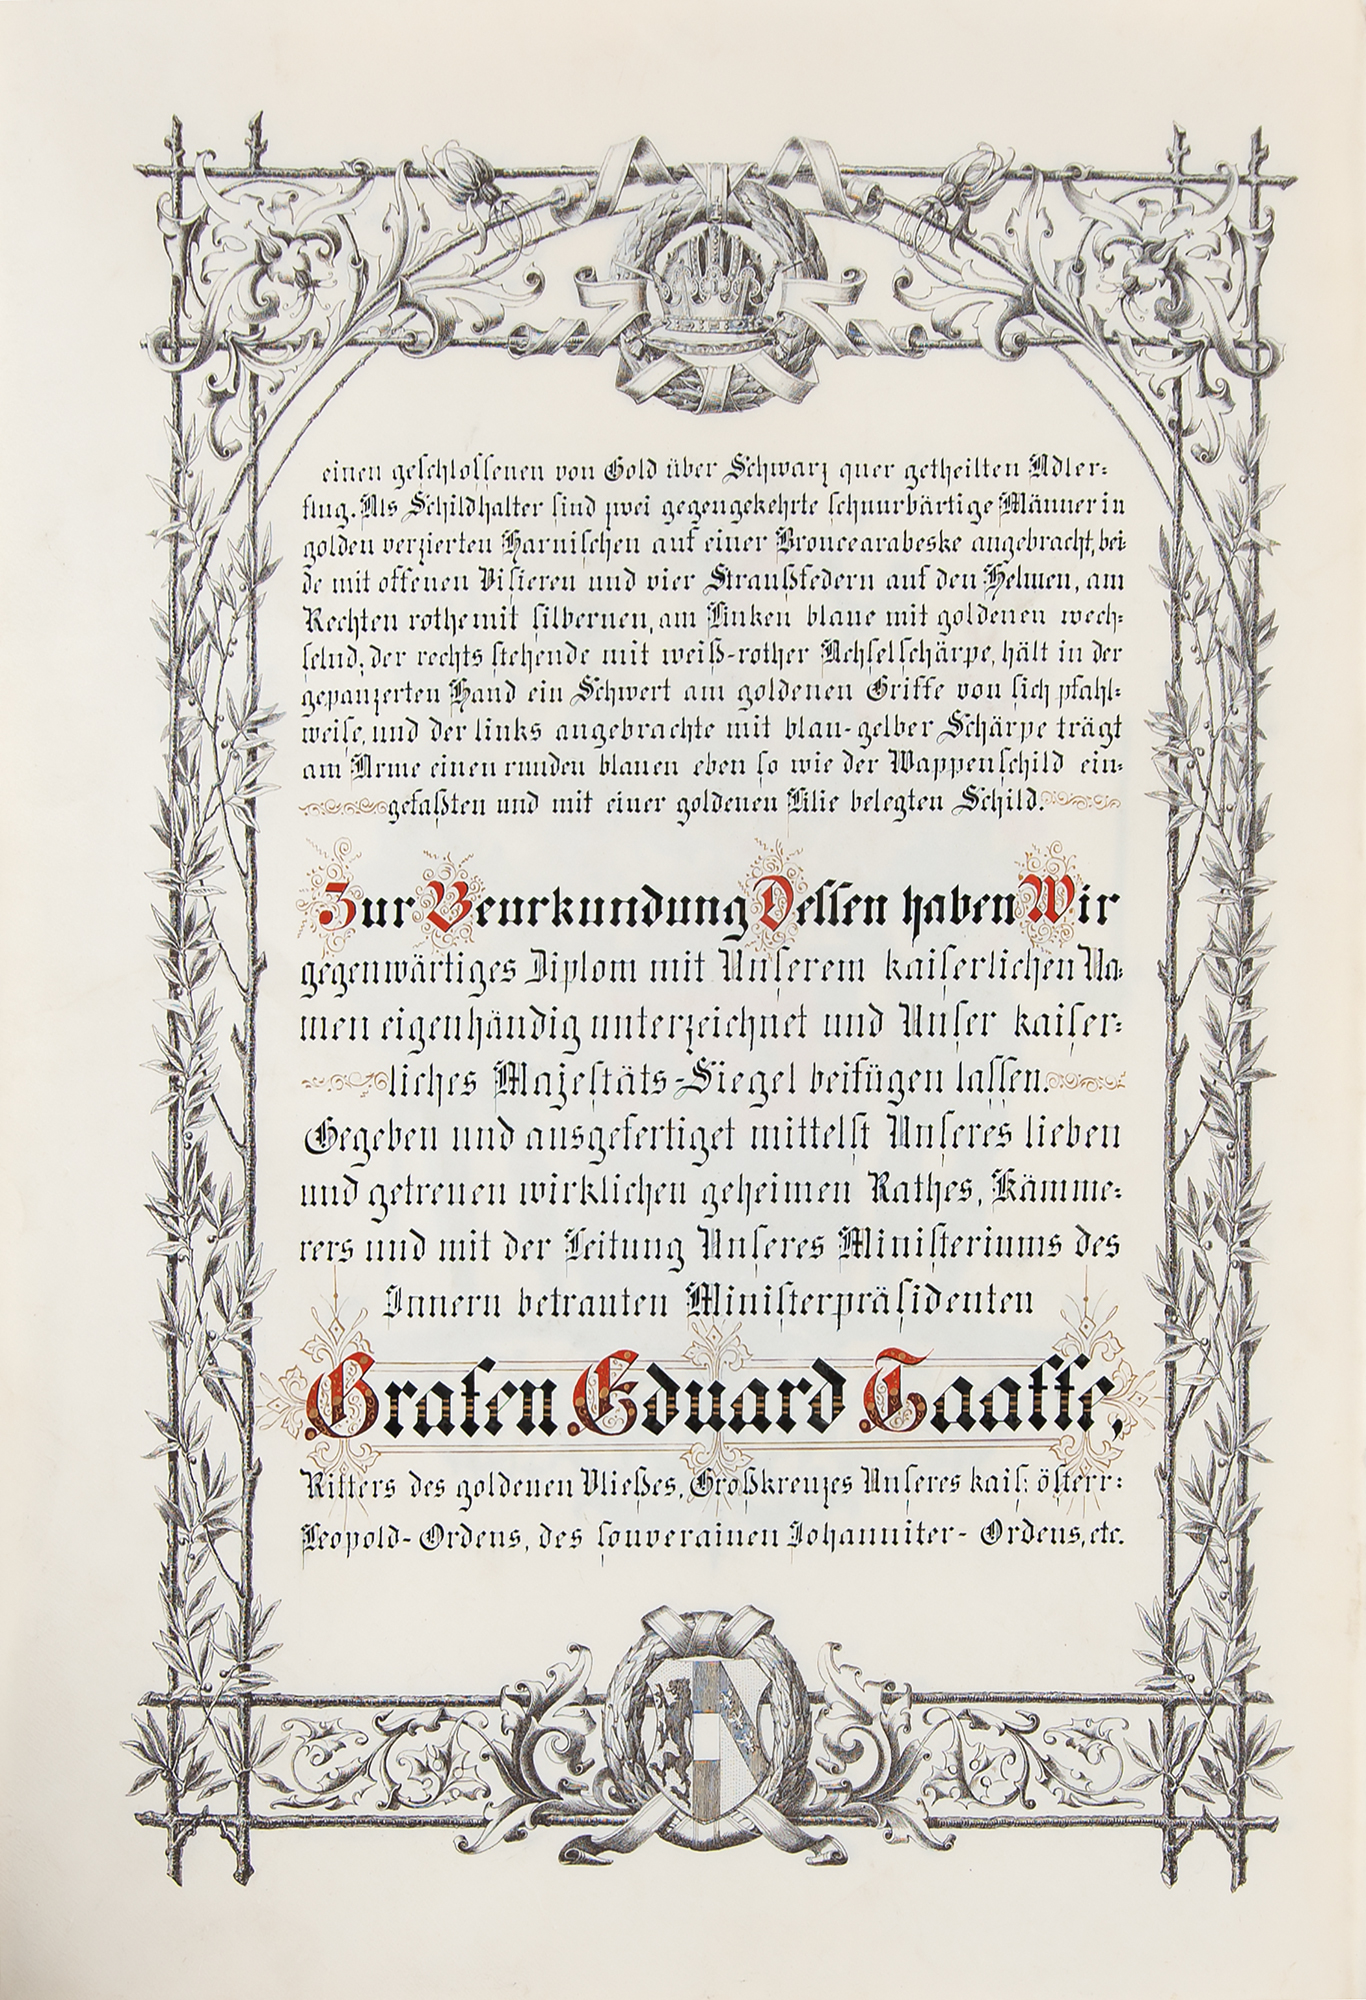 einen geschlossenen von Gold über Schwarz quer getheilten Adler-
flug. Als Schildhalter sind zwei gegengekehrte schnurbärtige Männer in
golden verzierten Harnischen auf einer Broncearabeske angebracht, bei-
de mit offenen Visieren und vier Straußfedern auf den Helmen, am
Rechten rothe mit silbernen, am Linken blaue mit goldenen wech-
selnd; der rechts stehende mit weiß-rother Achselschärpe, hält in der
gepanzerten Hand ein Schwert am goldenen Griffe von sich pfahl-
weise, und der links angebrachte mit blau-gelber Schärpe trägt
am Arme einen runden blauen eben so wie der Wappenschild ein-
gefaßten und mit einer goldenen Lilie belegten Schild.
Zur Beurkundung Dessen haben Wir
gegenwärtiges Diplom mit Unserem kaiserlichen Na-
men eigenhändig unterzeichnet und Unser kaiser-
liches Majestäts-Siegel beifügen lassen.
Gegeben und ausgefertiget mittelst Unseres lieben
und getreuen wirklichen geheimen Rathes, Kämme-
rers und mit der Leitung Unseres Ministeriums des
Innern betrauten Ministerpräsidenten
Grafen Eduard Taaffe,
Ritters des goldenen Vließes, Großkreuzes Unseres kais: österr:
Leopold-Ordens, des souverainen Johanniter-Ordens, etc.